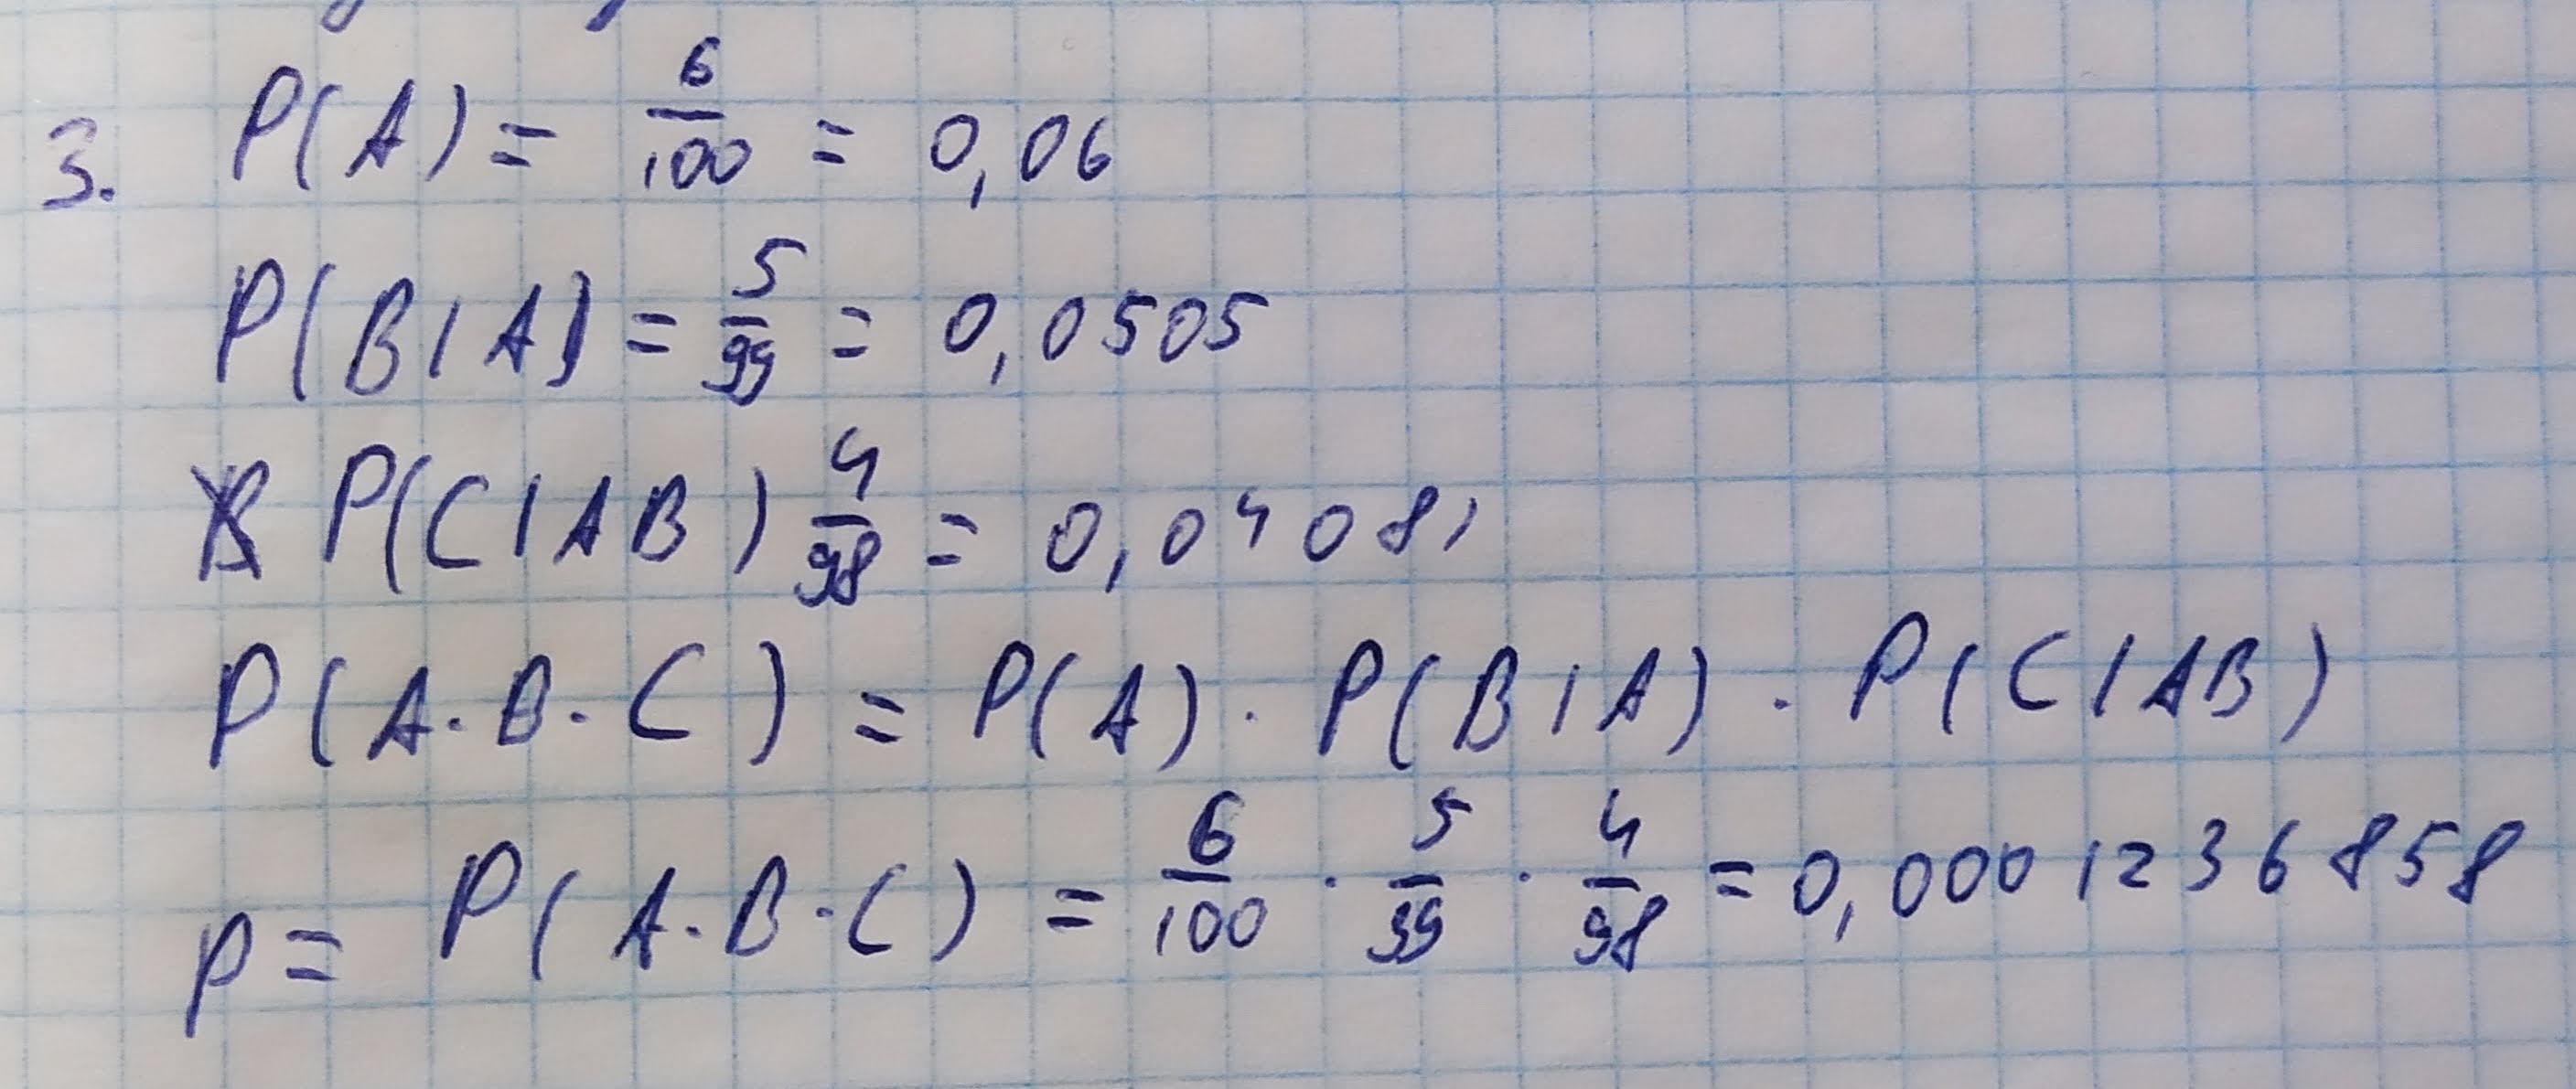 3. P(A) = 6/100 = 0,06
P(B|A) = 5/99 = 0,0505
P(C|AB) 4/98 = 0,04081
P(A·B·C) = P(A) · P(B|A) · P(C|AB)
p = P(A·B·C) = 6/100 · 5/99 · 4/98 = 0,0001236858